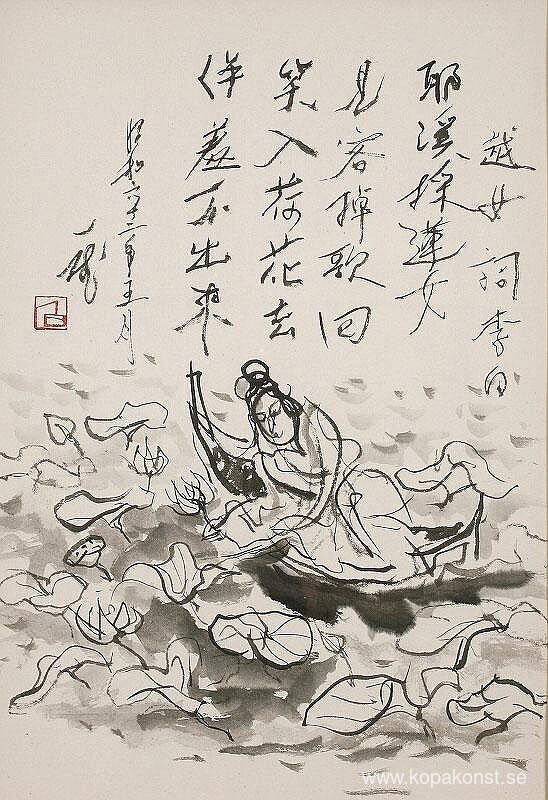 越女詞 李白
耶溪採蓮女
見客棹歌回
笑入荷花去
佯羞不出來
昭和六十二年五月
www.kopakonst.se